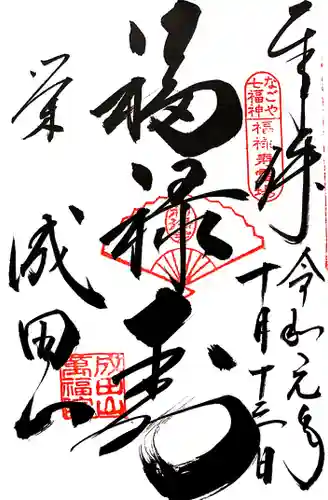 奉拝
令和元年
十月十三日
なごや
七福神
福禄寿霊場
福禄寿
成田山
萬福院
成田山